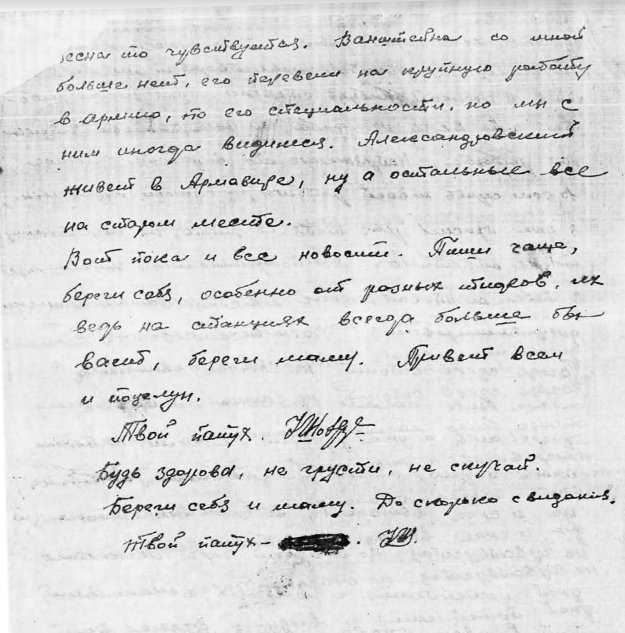 чувствуется. со мной
больше нет, его перевели на крупную работу
в армию, по его специальности. но мы с
ним иногда видимся. Александровский
живет в Армавире, ну а остальные все
на старом месте.
Вот пока и все новости. Пиши чаще,
береги себя, особенно от разных их
ведь на станциях всегда больше бы-
вает, береги маму. Привет всем
и поцелуи.
Твой папух.
Будь здорова, не грусти, не скучай.
Береги себя и маму. До скорого свидания.
Твой папух -